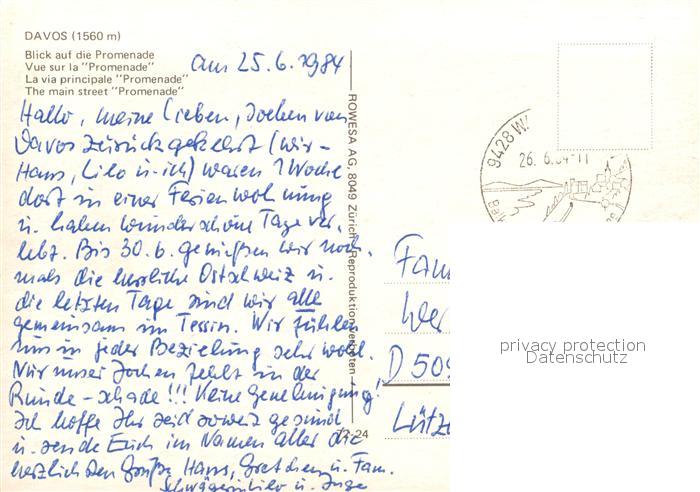 DAVOS (1560 m)
Blick auf die Promenade
Vue sur la "Promenade"
La via principale "Promenade"
The main street "Promenade"
am 25.6.1984
Hallo, meine Lieben, soeben von
Davos zurückgekehrt (wir -
Hans, Lilo u. ich) waren 1 Woche
dort in einer Ferienwohnung
u. haben wunderschöne Tage ver-
lebt. Bis 30.6. genießen wir noch-
mals die herrliche Ostschweiz u.
die letzten Tage sind wir alle
gemeinsam im Tessin. Wir fühlen
uns in jeder Beziehung sehr wohl.
Nur unser Jochen fehlt in der
Runde - schade!!! Keine Genehmigung!
Ich hoffe Ihr seid soweit gesund
u. sende Euch im Namen aller die
herzlichsten Grüße Hans, Gretchen u. Fam.
Schwägerin Lilo u. Inge
ROWESA AG, 8049 Zürich Reproduktion verboten
24
9428 W
26. 6. 84-11
Fam
D 509
Lütz
privacy protection
Datenschutz